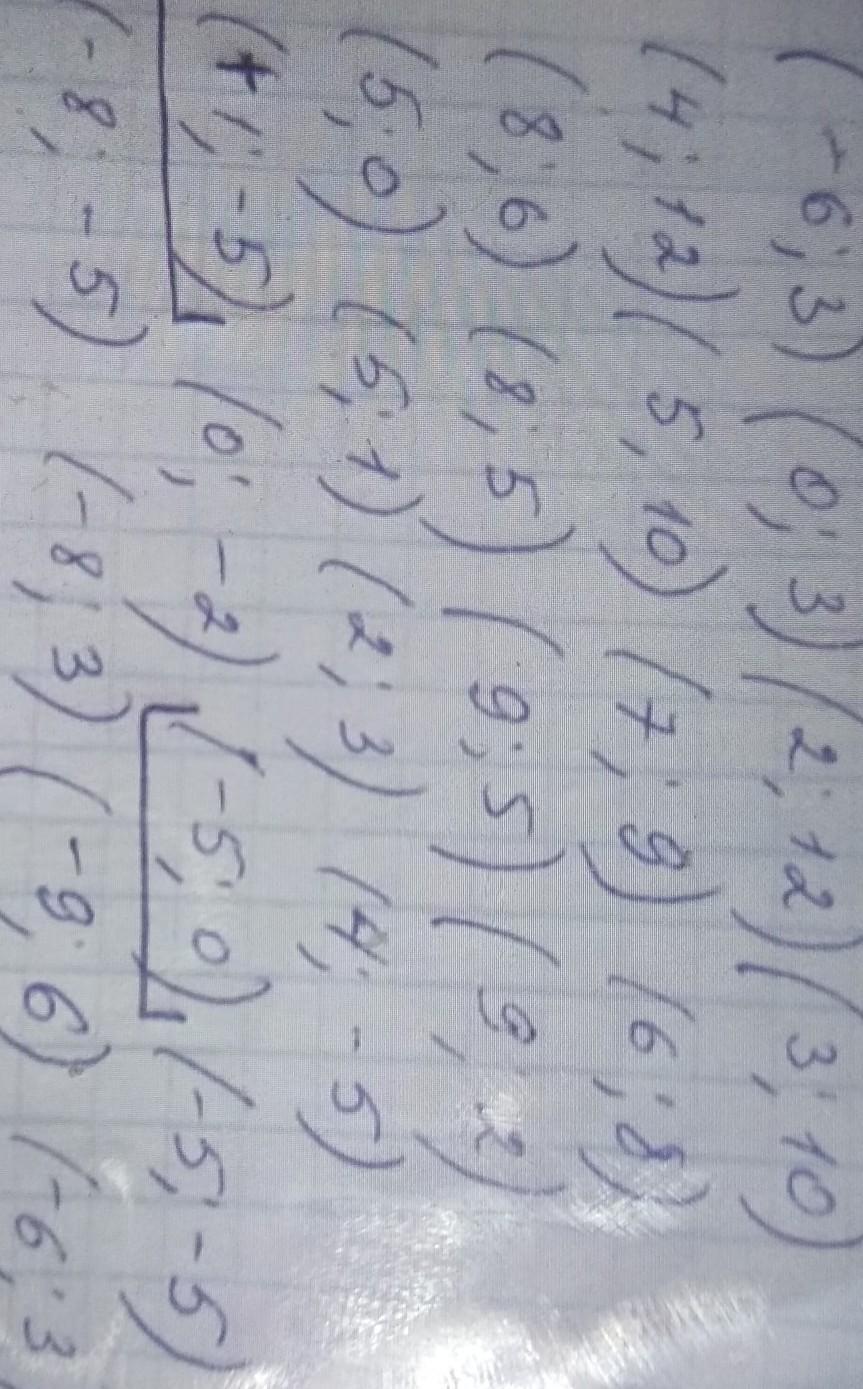 (-6; 3) (0; 3) (2; 12) (3; 10)
(4; 12) (5; 10) (7; 9) (6; 8)
(8; 6) (8; 5) (9; 5) (9; 2)
(5; 0) (5; 1) (2; 3) (4; -5)
(+1; -5) (0; -2) (-5; 0) (-5; -5)
(-8; -5) (-8; 3) (-9; 6) (-6; 3